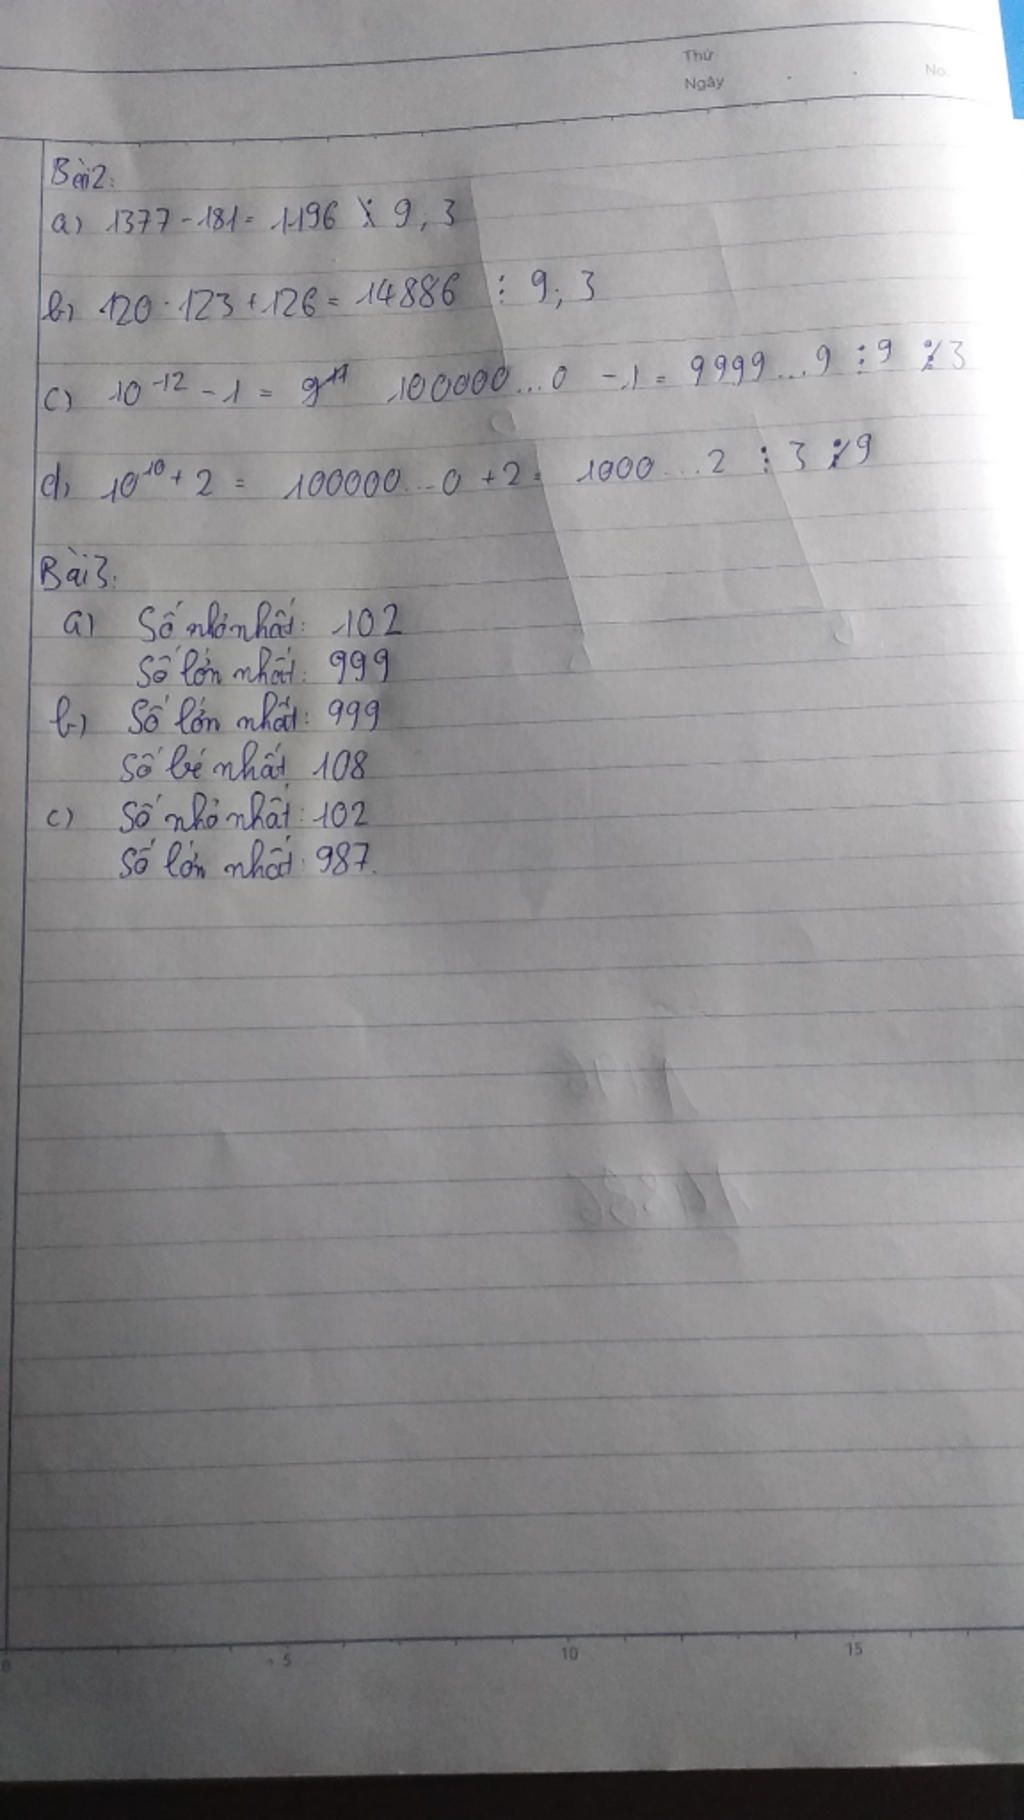 Thứ
Ngày
No.
Bài 2:
a) 1377 - 181 = 1196 ⋮̸ 9, 3
b) 120 · 123 + 126 = 14886 ⋮ 9; 3
c) 10^-12 - 1 = 100000...0 - 1 = 9999...9 ⋮ 9 ⋮̸ 3
d) 10^10 + 2 = 100000...0 + 2 = 1000...2 ⋮ 3 ⋮̸ 9
Bài 3:
a) Số nhỏ nhất: 102
Số lớn nhất: 999
b) Số lớn nhất: 999
Số bé nhất 108
c) Số nhỏ nhất: 102
Số lớn nhất: 987.
0 5 10 15